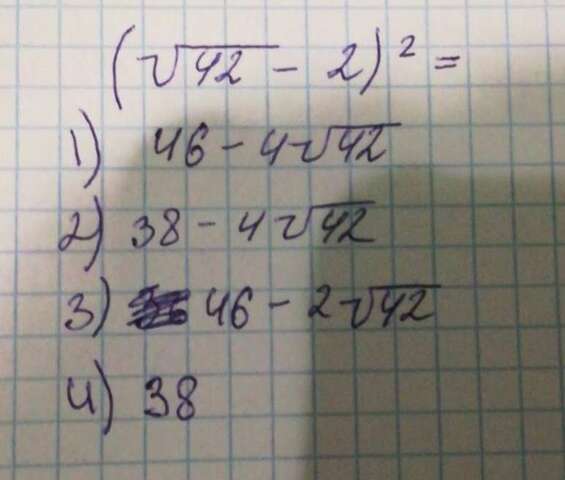 (√42 - 2)² =
1) 46 - 4√42
2) 38 - 4√42
3) 46 - 2√42
4) 38